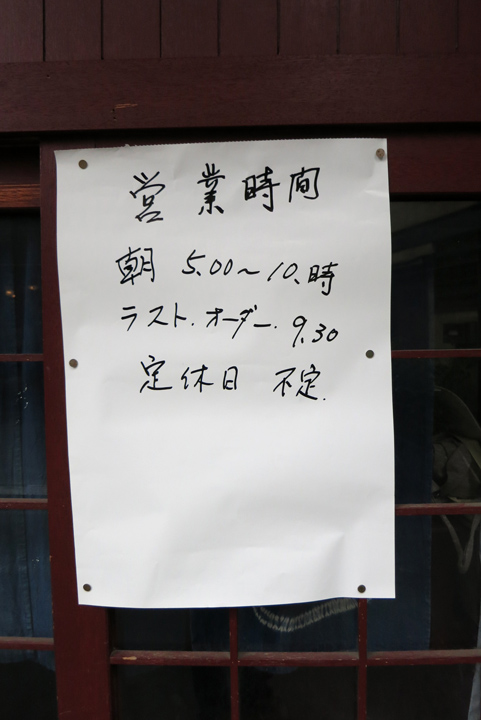 営業時間
朝 5.00〜10.時
ラスト.オーダー.9.30
定休日 不定.